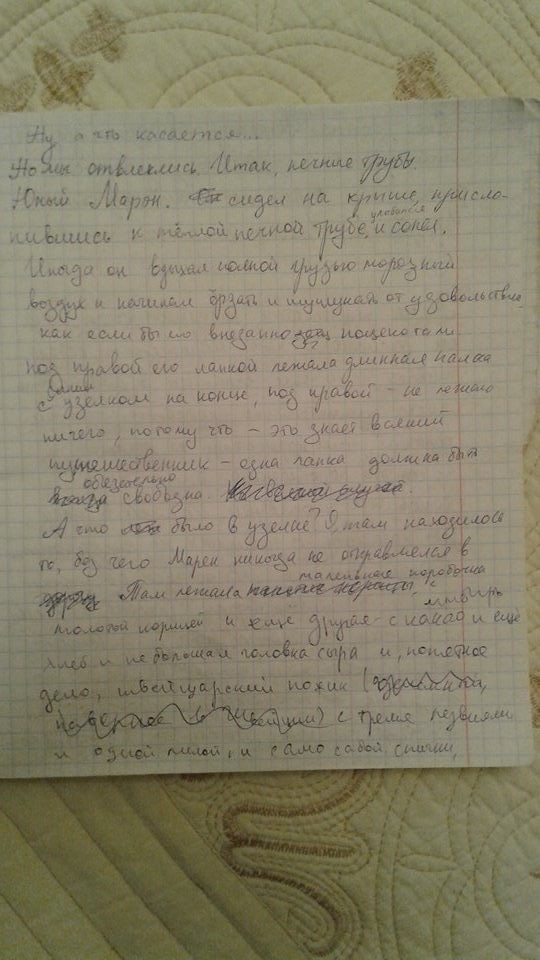 Ну а что касается...
Но мы отвлеклись. Итак, печные трубы.
Юный Марэн. сидел на крыше, присло-
нившись к тёплой печной трубе, улыбался и сопел.
Иногда он вдыхал полной грудью морозный
воздух и начинал ёрзать и от удовольствия
как если бы его внезапно пощекотали
под правой его лапкой лежала длинная палка
с узелком на конце, под правой - не лежало
ничего, потому что - это знает всякий
путешественник - одна лапка должна быть
обязательно свободна.
А что было в узелке? О, там находилось
то, без чего Марен никогда не отправлялся в
Там лежала маленькая коробочка
с молотой корицей и ещё другая - с какао и ещё
хлеб и небольшая головка сыра и, понятное
дело, швейцарский ножик
с тремя лезвиями
и одной пилой, и само собой спички,